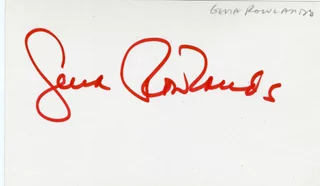 GENA ROWLANDS
Gena Rowlands